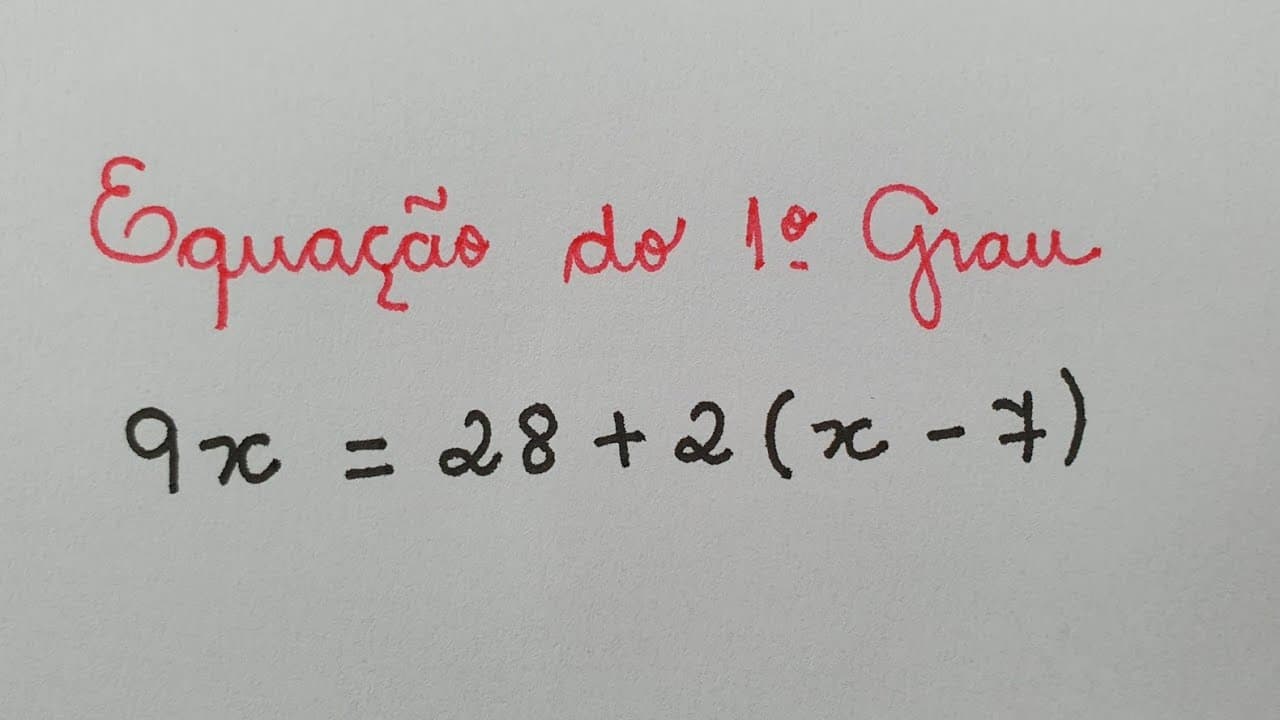 Equação do 1º Grau
9x = 28 + 2(x - 7)